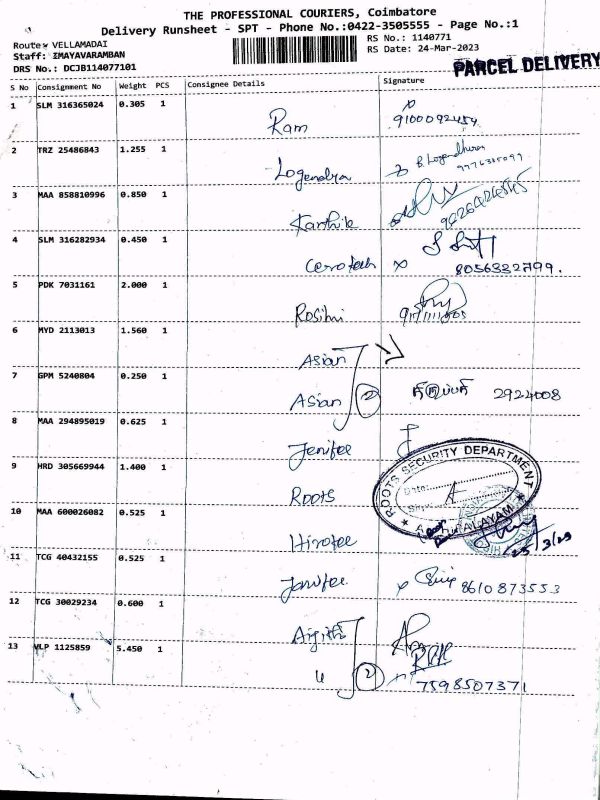 THE PROFESSIONAL COURIERS, Coimbatore
Delivery Runsheet - SPT - Phone No.:0422-3505555 - Page No.:1
Route: VELLAMADAI
RS No.: 1140771
Staff: IMAYAVARAMBAN
RS Date: 24-Mar-2023
DRS No.: DCJB114077101
PARCEL DELIVERY
S No Consignment No Weight PCS Consignee Details Signature
1 SLM 316365024 0.305 1
Ram 9100092454
2 TRZ 25486843 1.255 1
Logendra B. Logendhiran
3 MAA 858810996 0.850 1
Karthik
4 SLM 316282934 0.450 1
Cerotech 8056332799.
5 PDK 7031161 2.000 1
Rosini
6 MYD 2113013 1.560 1
Asian
7 GPM 5240804 0.250 1
Asian 2 2924008
8 MAA 294895019 0.625 1
Jenifee
9 HRD 305669944 1.400 1
ROOTS
ROOTS SECURITY DEPARTMENT
Date:
10 MAA 600026082 0.525 1
Hirotee
25/3/23
11 TCG 40432155 0.525 1
Jenifee 8610873553
12 TCG 30029234 0.600 1
Aijith
13 VLP 1125859 5.450 1
2
7598507371